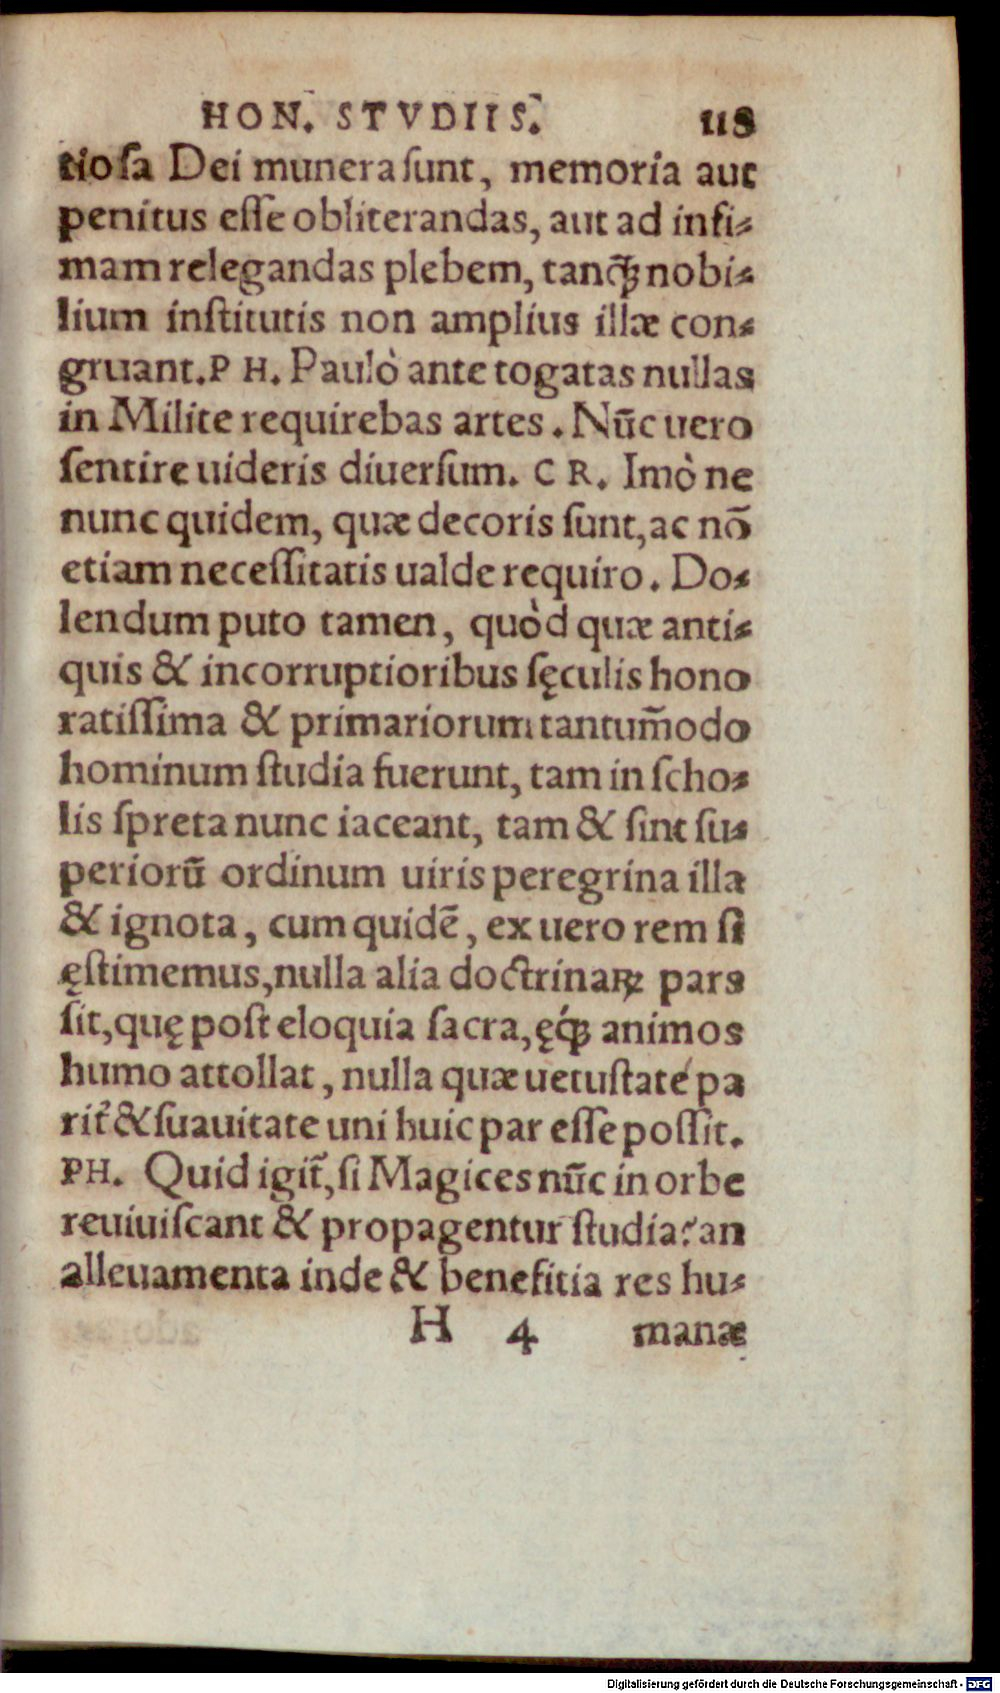 HON. STVDIIS. 118
tiosa Dei munera sunt, memoria aut
penitus esse obliterandas, aut ad infi-
mam relegandas plebem, tanꝗ̃ nobi-
lium institutis non amplius illæ con-
gruant. PH. Paulò ante togatas nullas
in Milite requirebas artes. Nūc uero
sentire uideris diuersum. CR. Imò ne
nunc quidem, quæ decoris sunt, ac nō
etiam necessitatis ualde requiro. Do-
lendum puto tamen, quòd quæ anti-
quis & incorruptioribus sęculis hono
ratissima & primariorum tantum̄odo
hominum studia fuerunt, tam in scho-
lis spreta nunc iaceant, tam & sint su-
periorū ordinum uiris peregrina illa
& ignota, cum quidē, ex uero rem si
ęstimemus, nulla alia doctrinaꝝ pars
sit, quę post eloquia sacra, ęq́ꝫ animos
humo attollat, nulla quæ uetustate pa
rit̃ & suauitate uni huic par esse possit.
PH. Quid igit̃, si Magices nūc in orbe
reuiuiscant & propagentur studia? an
alleuamenta inde & benefitia res hu-
H 4 manæ
Digitalisierung gefördert durch die Deutsche Forschungsgemeinschaft - DFG